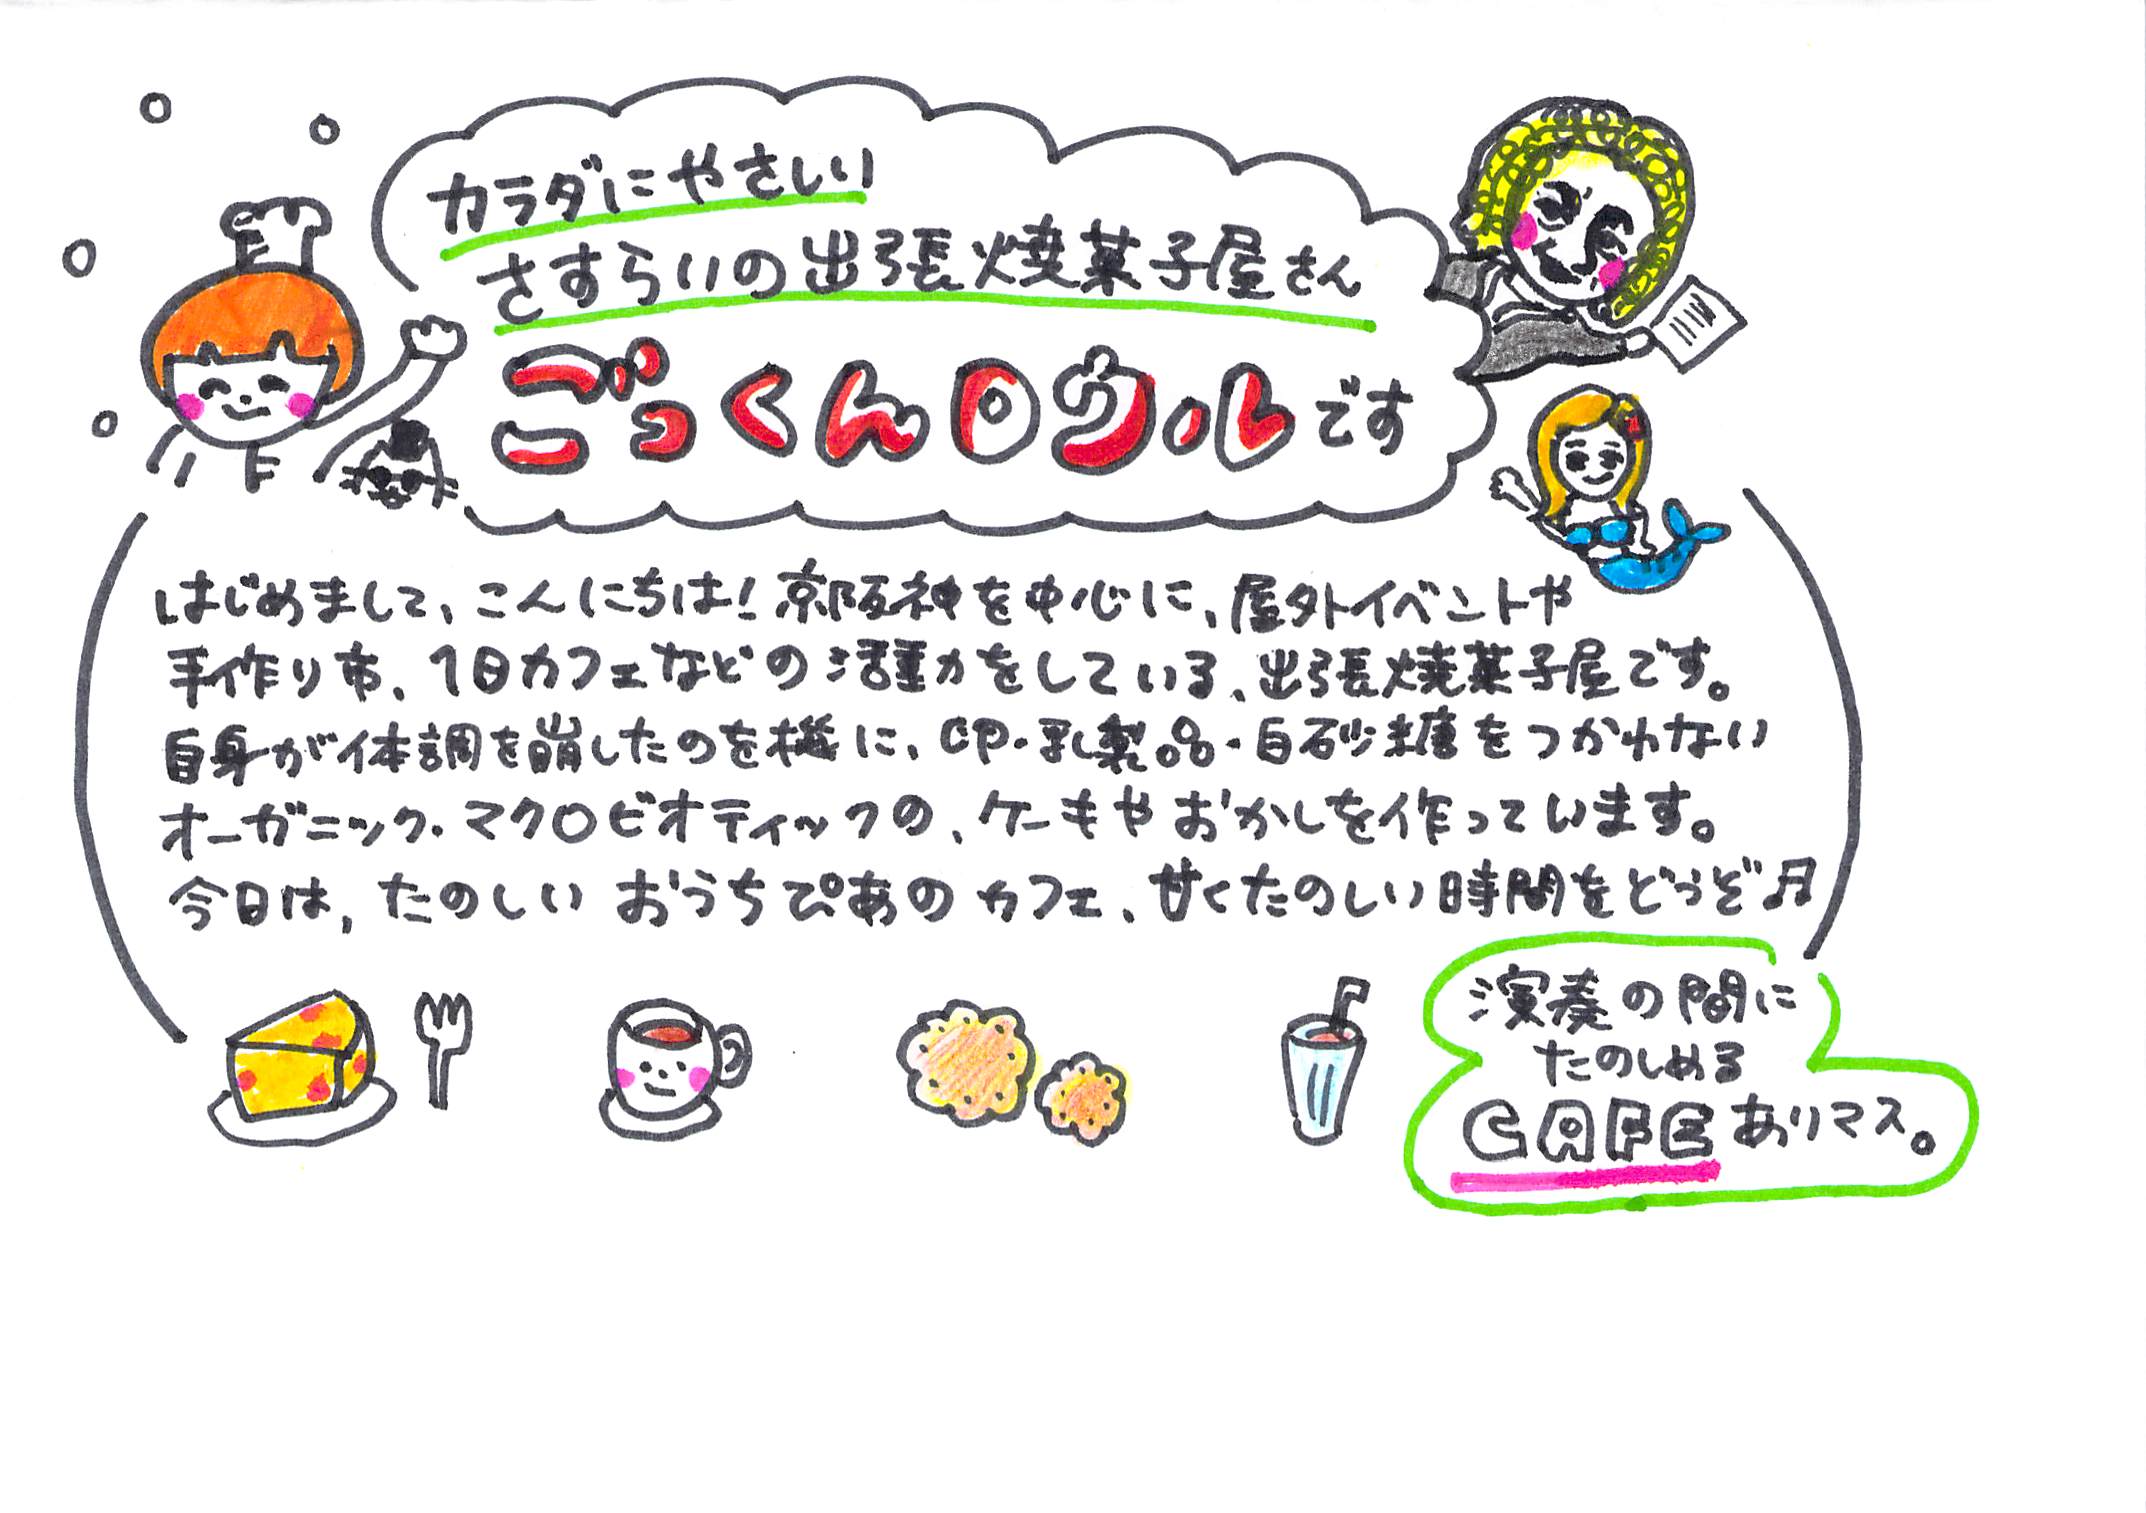 カラダにやさしい
さすらいの出張焼菓子屋さん
ごっくんロウルです
はじめまして、こんにちは！京阪神を中心に、屋外イベントや
手作り市、1日カフェなどの活動をしている、出張焼菓子屋です。
自身が体調を崩したのを機に、卵・乳製品・白砂糖をつかわない
オーガニック・マクロビオティックの、ケーキやおかしを作っています。
今日は、たのしい おうちぴあの カフェ、甘くたのしい時間をどうぞ♬
演奏の間に
たのしめる
CAFEありマス。